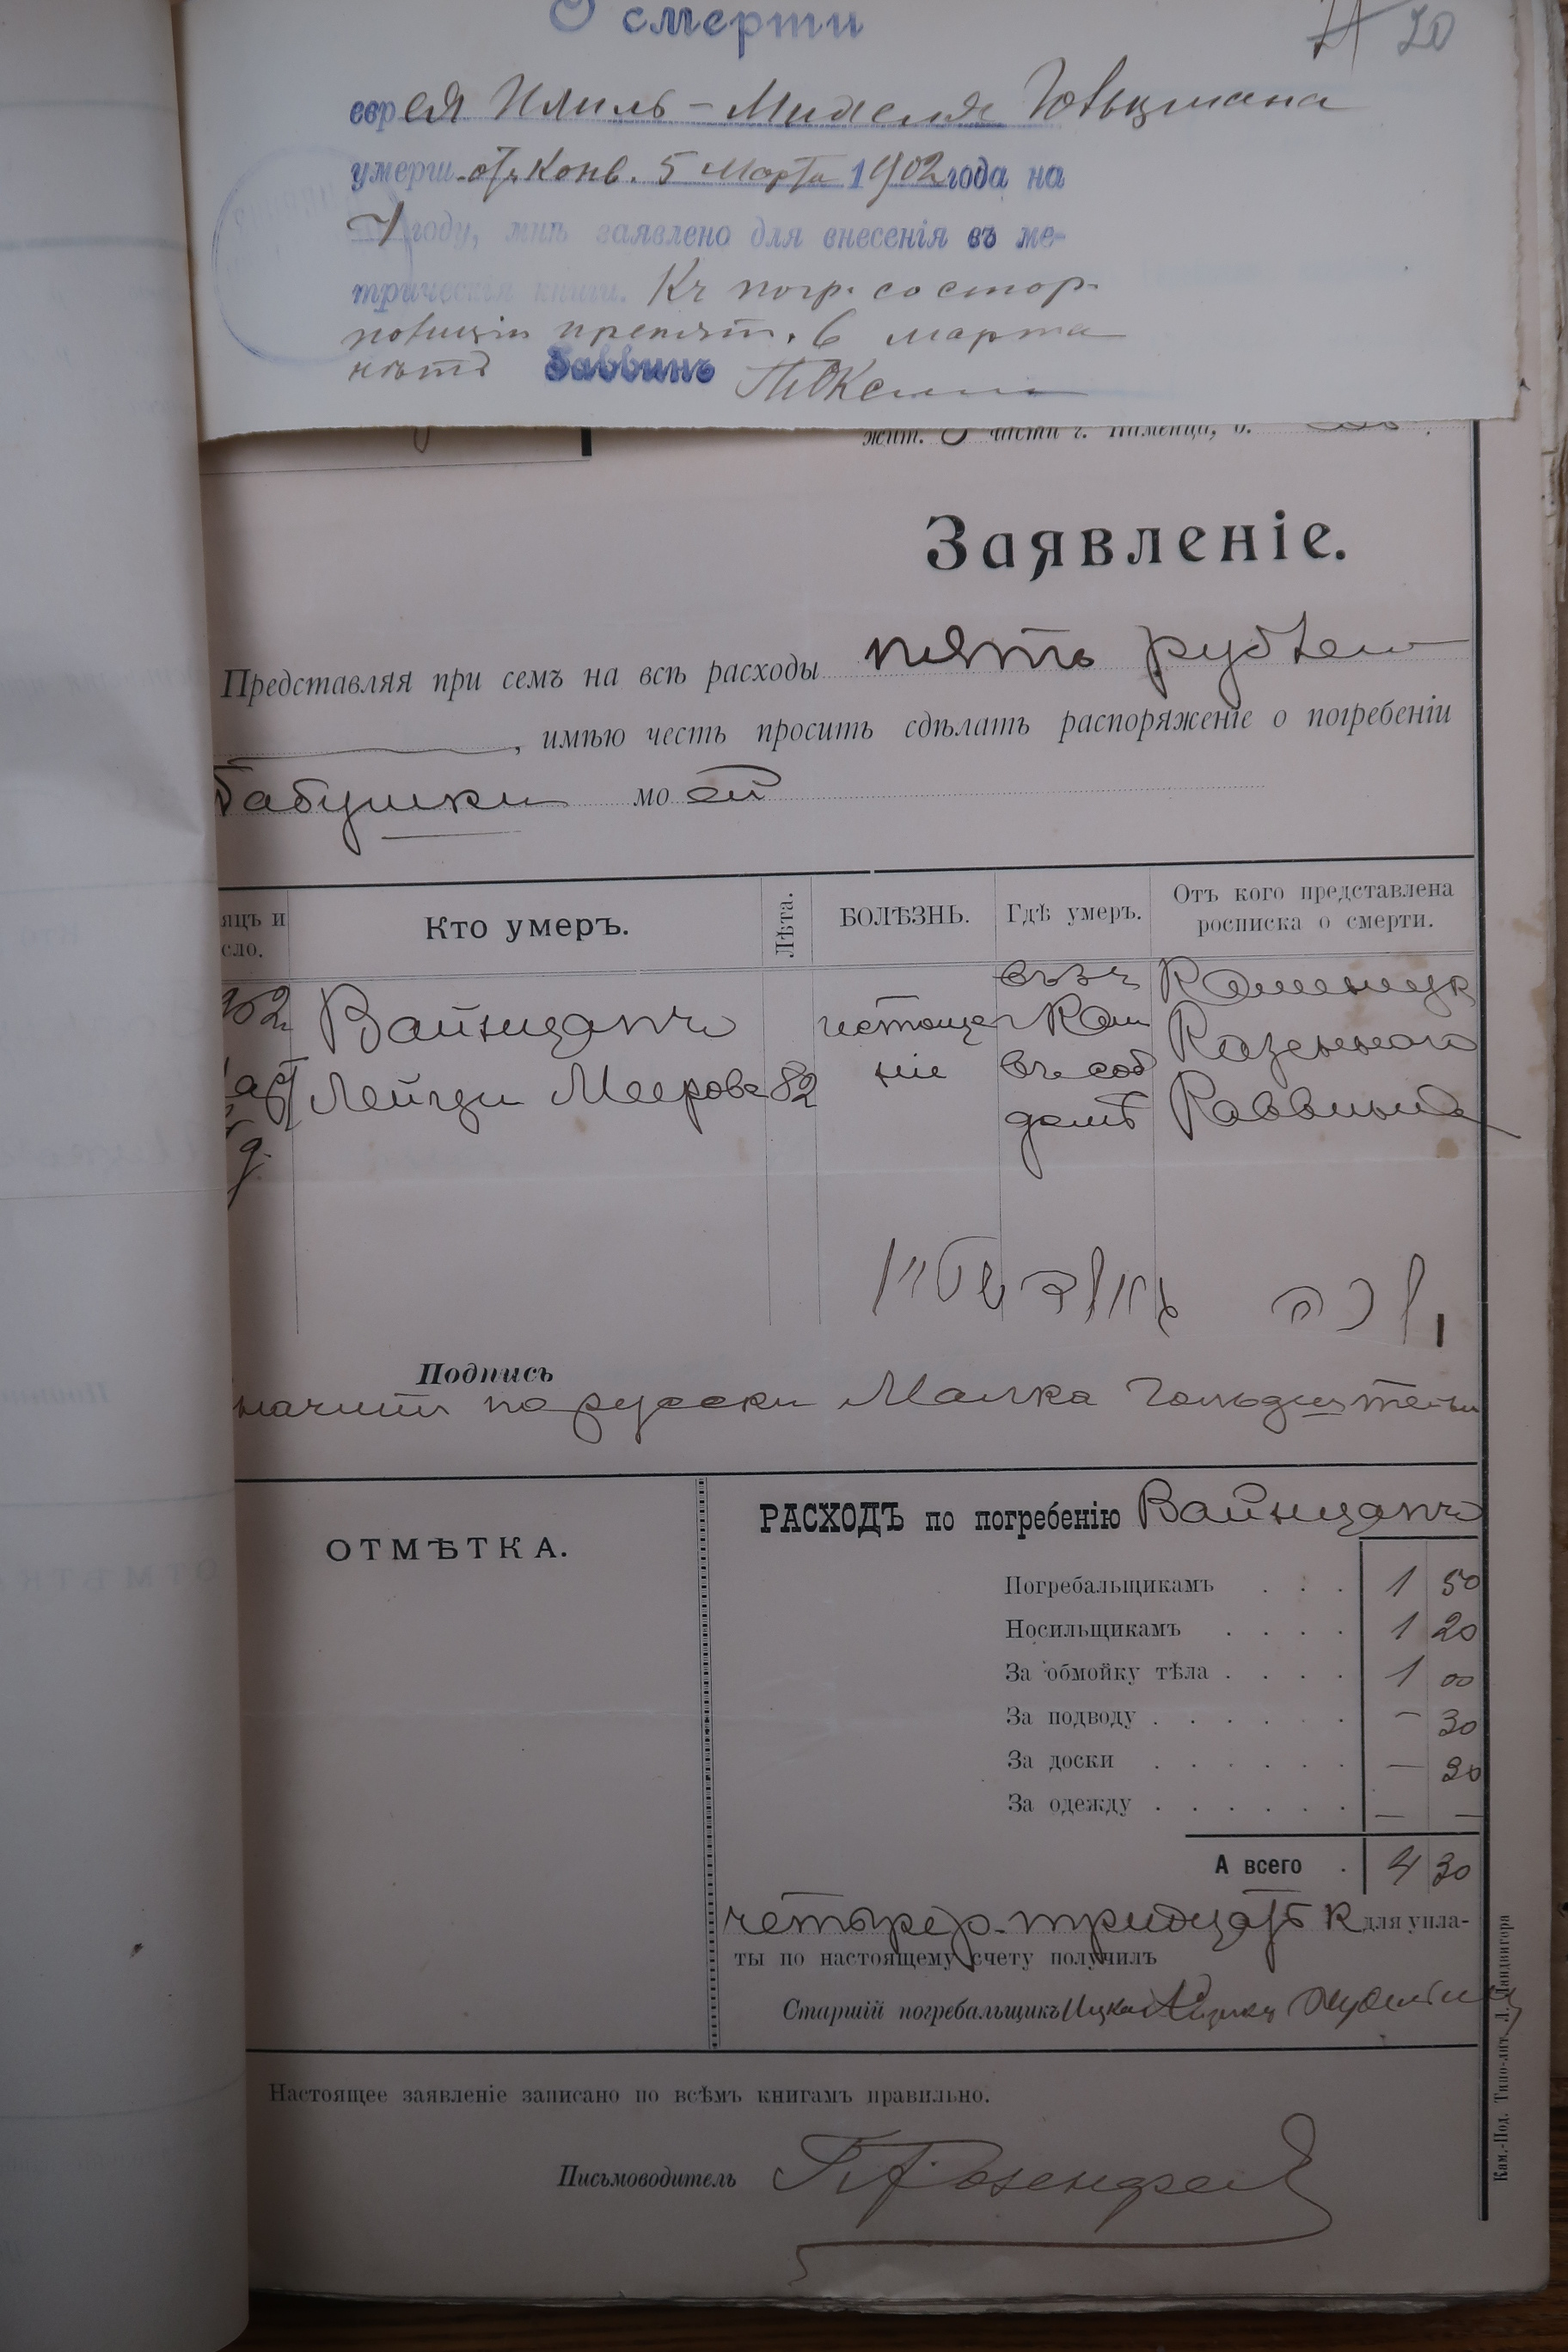 О смерти
20
еврея Илиль-Михеля
умерш. отъ Конв. 5 Марта 1902 года на
году, мнѣ заявлено для внесенія въ ме-
трическія книги. Къ погр. со стор.
полиціи препят. 6 марта
нѣтъ Раввинъ
жит. части г. Каменца, д.
Заявленіе.
Представляя при семъ на всѣ расходы пять рублей
, имѣю честь просить сдѣлать распоряженіе о погребеніи
бабушки моей
яцъ и сло. Кто умеръ. Лѣта. БОЛѢЗНЬ. Гдѣ умеръ. Отъ кого представлена росписка о смерти.
Вайнцапъ истоще въ Кам Каменецк
Лейци Меерова 82 ніе въ соб Казеннаго
домѣ Раввина
מלכה גאלדשטיין
Подпись
значитъ по русски Малка Гольдштейн
ОТМѢТКА.
РАСХОДЪ по погребенію Вайнцапъ
Погребальщикамъ . . . 1 50
Носильщикамъ . . . . 1 20
За обмойку тѣла . . . . 1 00
За подводу . . . . . . — 30
За доски . . . . . . — 30
За одежду . . . . . . — —
А всего . 4 30
четыре р. тридцать к для упла-
ты по настоящему счету получилъ
Старшій погребальщикъ Ицко
Настоящее заявленіе записано по всѣмъ книгамъ правильно.
Письмоводитель Розенфельд
Кам.-Под. Типо-лит. Л. Ландвигера